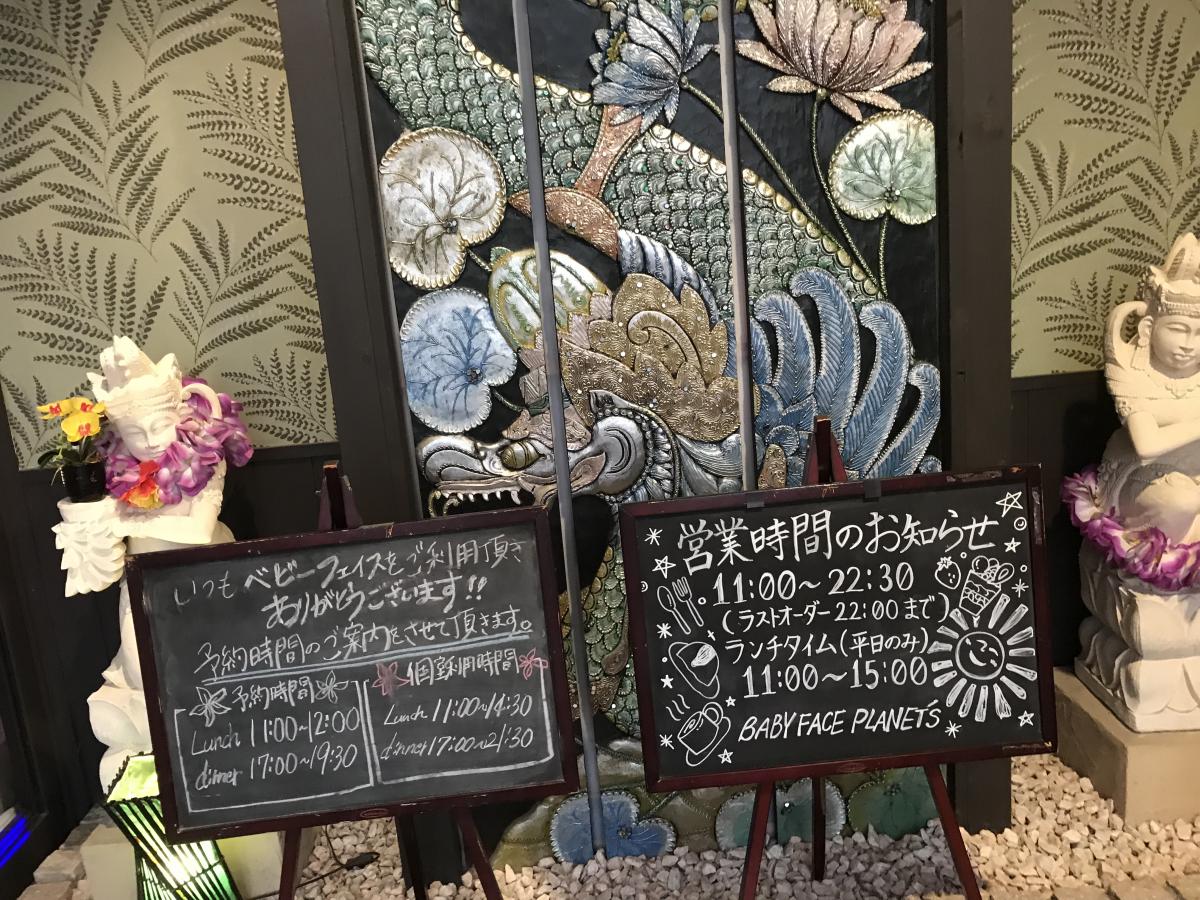 いつもベビーフェイスをご利用頂き
ありがとうございます!!
予約時間のご案内をさせて頂きます。
予約時間
Lunch 11:00~12:00
dinner 17:00~19:30
個室利用時間
Lunch 11:00~14:30
dinner 17:00~21:30
営業時間のお知らせ
11:00~22:30
(ラストオーダー22:00まで)
ランチタイム(平日のみ)
11:00~15:00
BABY FACE PLANET'S